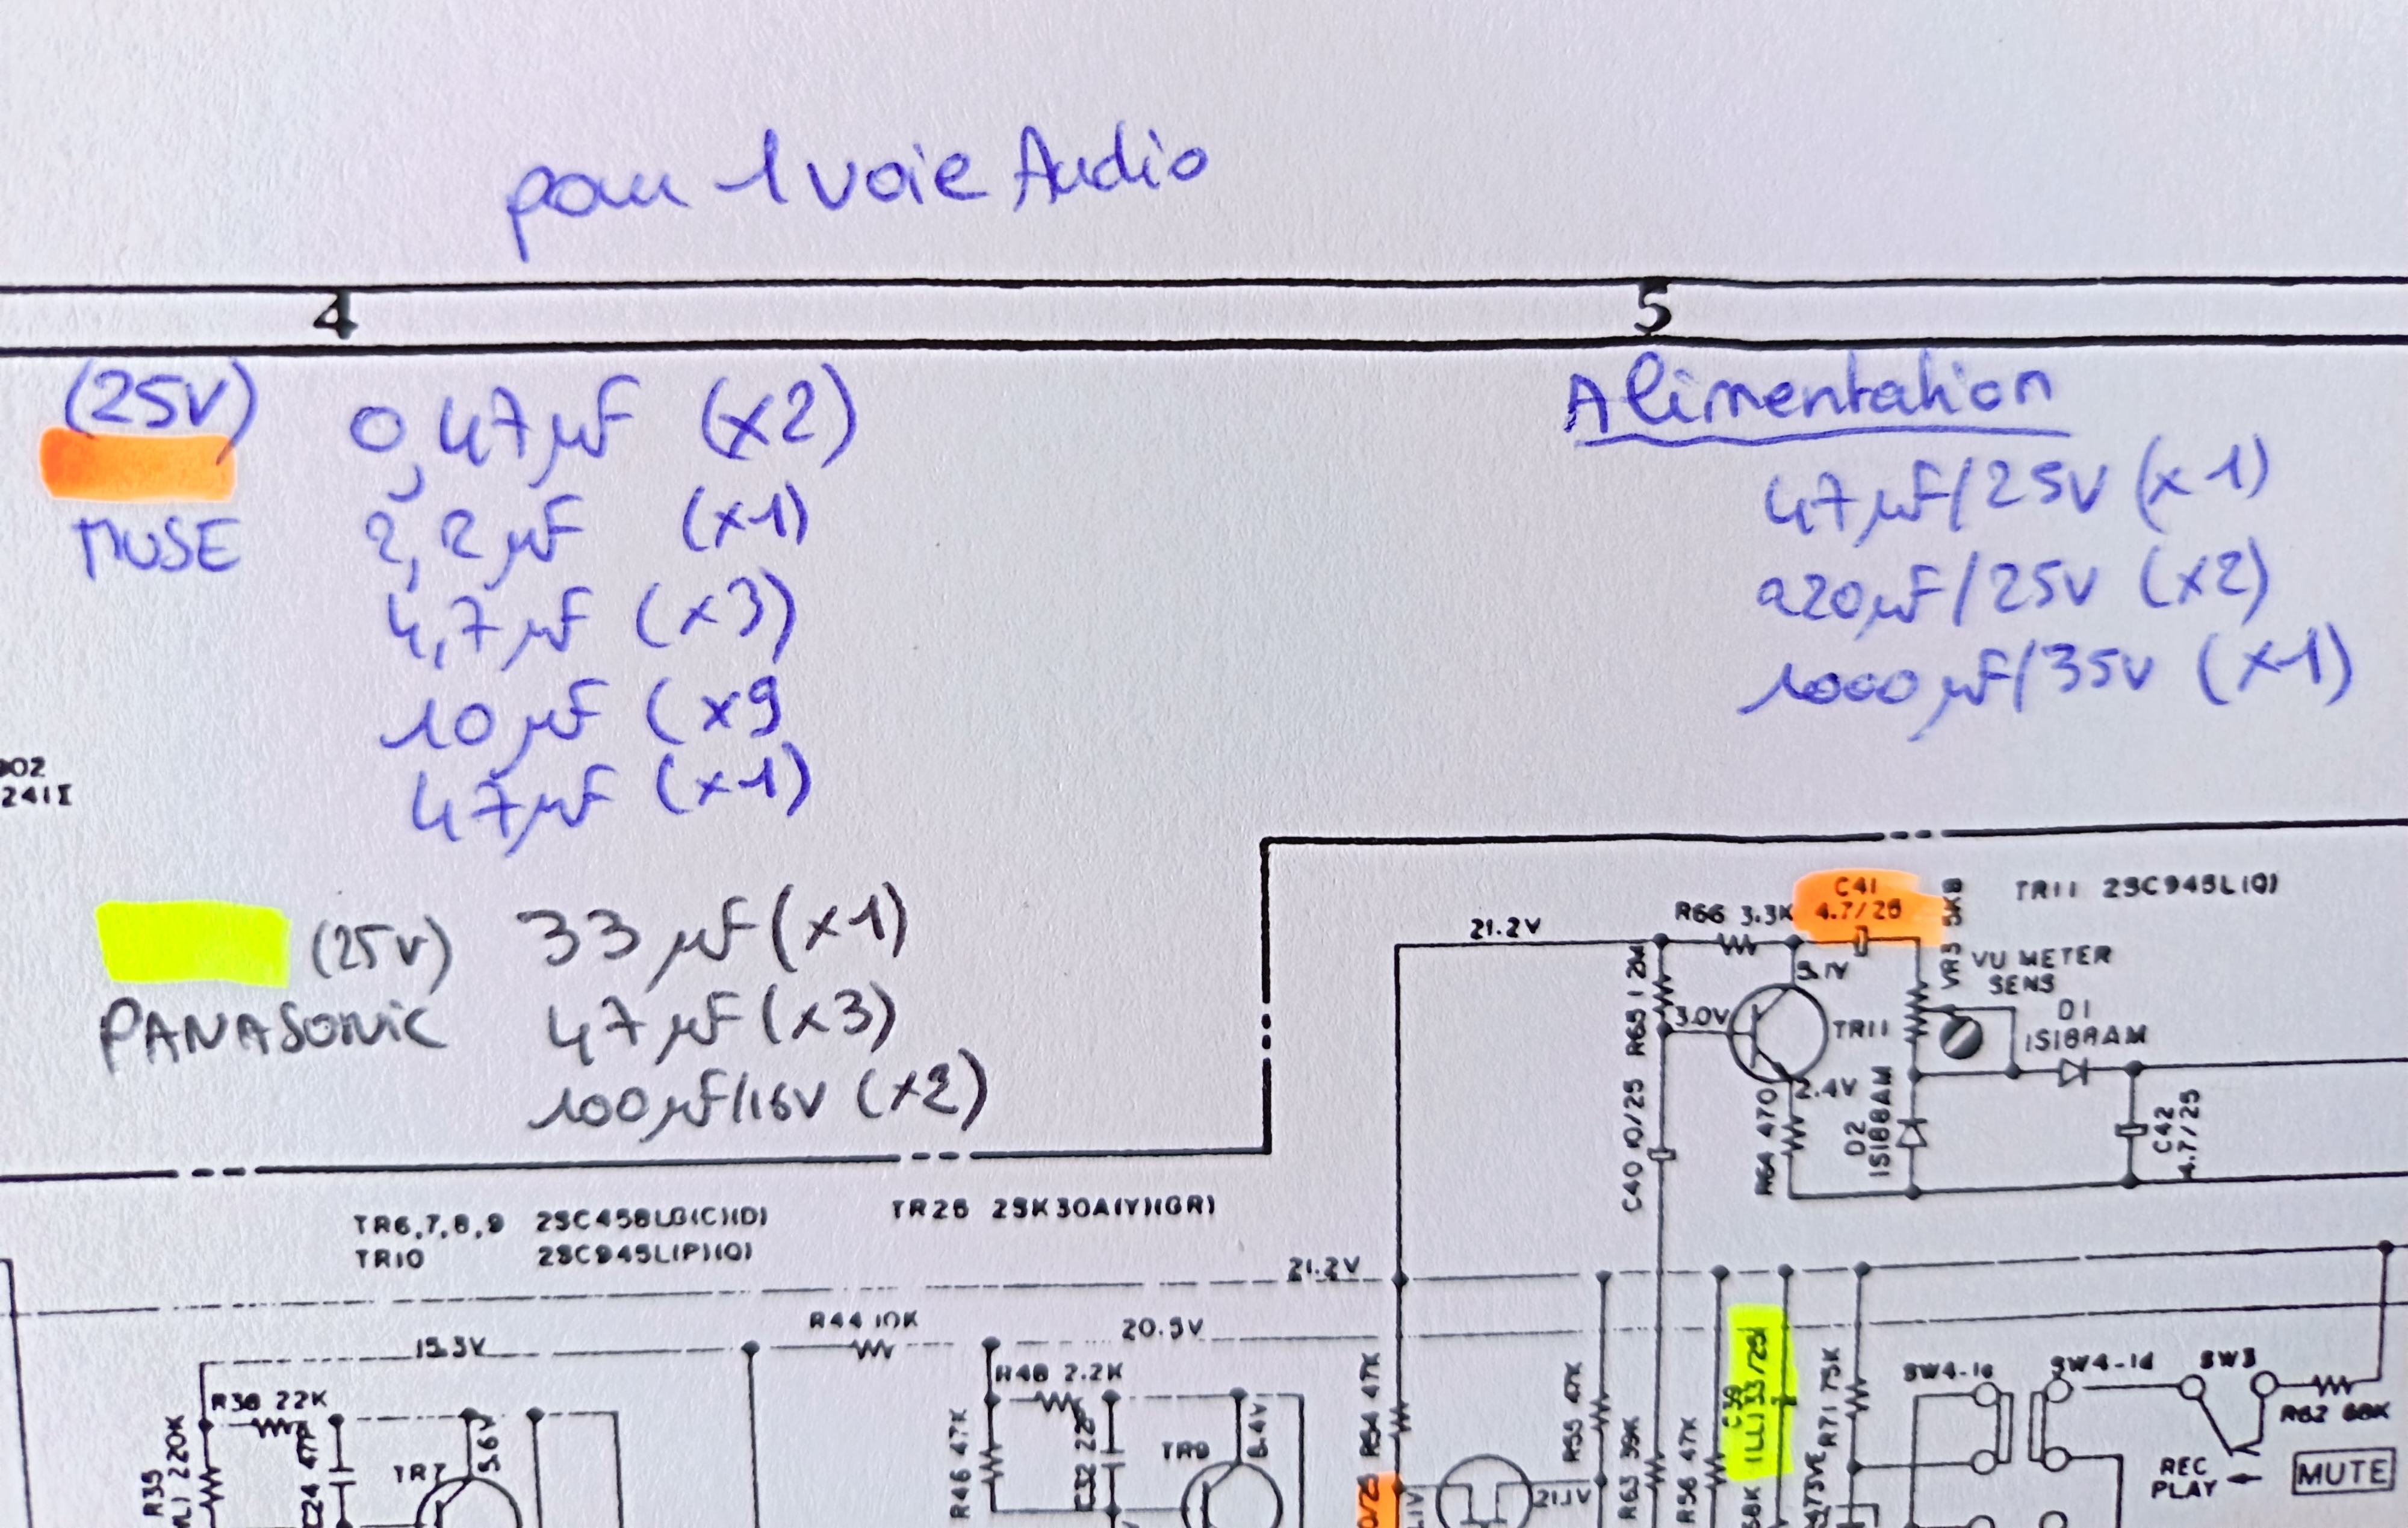 pour 1 voie Audio
4
5
(25V)
MUSE
0,47µF (x2)
2,2µF (x1)
4,7µF (x3)
10µF (x9
47µF (x1)
Alimentation
47µF/25V (x1)
220µF/25V (x2)
1000µF/35V (x1)
902
241I
(25V)
PANASONIC
33µF (x1)
47µF (x3)
100µF/16V (x2)
C41
4.7/25
R66 3.3K
TR11 2SC945L(Q)
VR3 5KB
VU METER
SENS
21.2V
3.0V
TR11
D1
1S188AM
2.4V
C40 10/25
R64 470
D2
1S188AM
C42
4.7/25
TR6,7,8,9 2SC458LG(C)(D)
TR10 2SC945L(P)(Q)
TR25 2SK30A(Y)(GR)
21.2V
R44 10K
20.5V
15.3V
R36 22K
R35
220K
C24 47P
TR7
5.6V
R46 47K
R54 47K
R55 47K
R63 39K
R56 47K
R71 75K
SW4-1d
SW3
REC
PLAY
MUTE